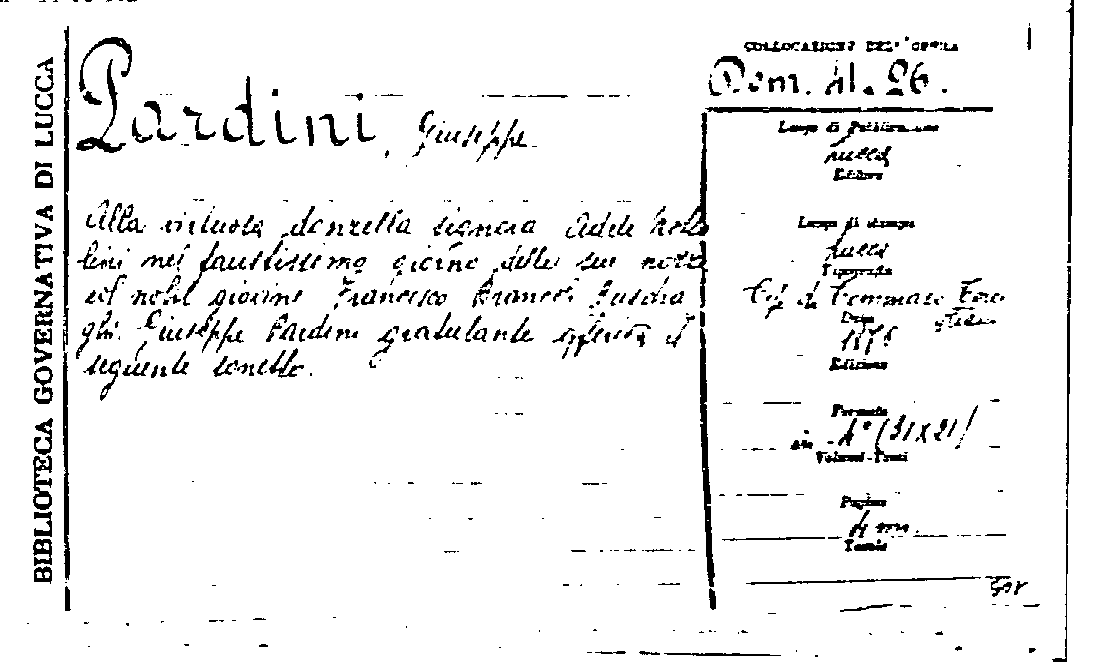 BIBLIOTECA GOVERNATIVA DI LUCCA
Pardini, Giuseppe
Alla virtuosa donzella signora Adele
lini nel faustissimo giorno delle sue nozze
col nobil giovine Francesco Buschia
ghi Giuseppe Pardini gratulante offeriva il
seguente sonetto.
COLLOCAZIONE DELL'OPERA
Dom. 41. 26.
Luogo di Pubblicazione
Lucca
Editore
Luogo di stampa
Lucca
Tipografia
Tip. di Tommaso
Data
Edizione
Formato
in 4° (31x21)
Volumi-Tomi
Pagine
4 nn.
Tavole